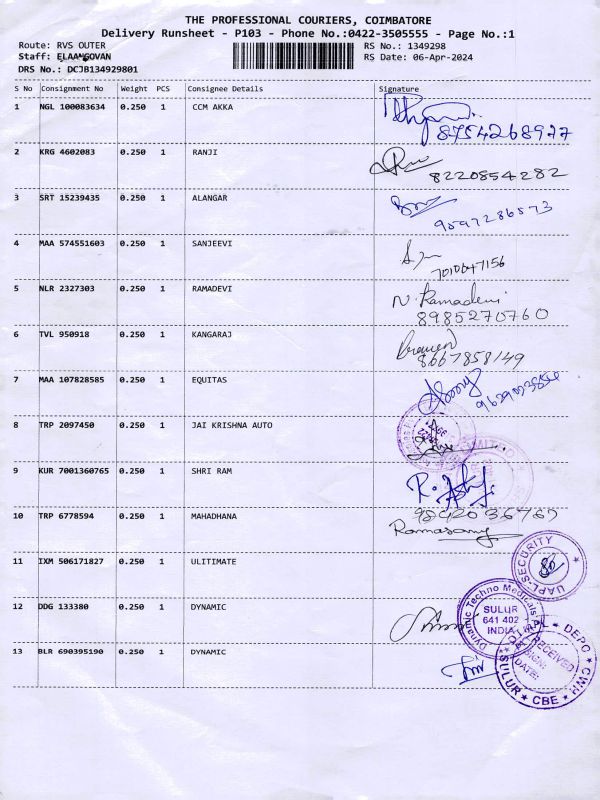 THE PROFESSIONAL COURIERS, COIMBATORE
Delivery Runsheet - P103 - Phone No.:0422-3505555 - Page No.:1
Route: RVS OUTER RS No.: 1349298
Staff: ELAANGOVAN RS Date: 06-Apr-2024
DRS No.: DCJB134929801
S No Consignment No Weight PCS Consignee Details Signature
1 NGL 100083634 0.250 1 CCM AKKA
8754268977
2 KRG 4602083 0.250 1 RANJI
8220854282
3 SRT 15239435 0.250 1 ALANGAR
9597286573
4 MAA 574551603 0.250 1 SANJEEVI
7010647156
5 NLR 2327303 0.250 1 RAMADEVI N. Ramadevi
8985270760
6 TVL 950918 0.250 1 KANGARAJ
8667858149
7 MAA 107828585 0.250 1 EQUITAS
8 TRP 2097450 0.250 1 JAI KRISHNA AUTO
9 KUR 7001360765 0.250 1 SHRI RAM
10 TRP 6778594 0.250 1 MAHADHANA
Ramasamy
11 IXM 506171827 0.250 1 ULITIMATE
UAPL-SECURITY
12 DDG 133380 0.250 1 DYNAMIC
Dynamic Techno Medicals
SULUR
641 402
INDIA
13 BLR 690395190 0.250 1 DYNAMIC
DEPO
RECEIVED
SIGN:
DATE:
SULUR CBE CWH